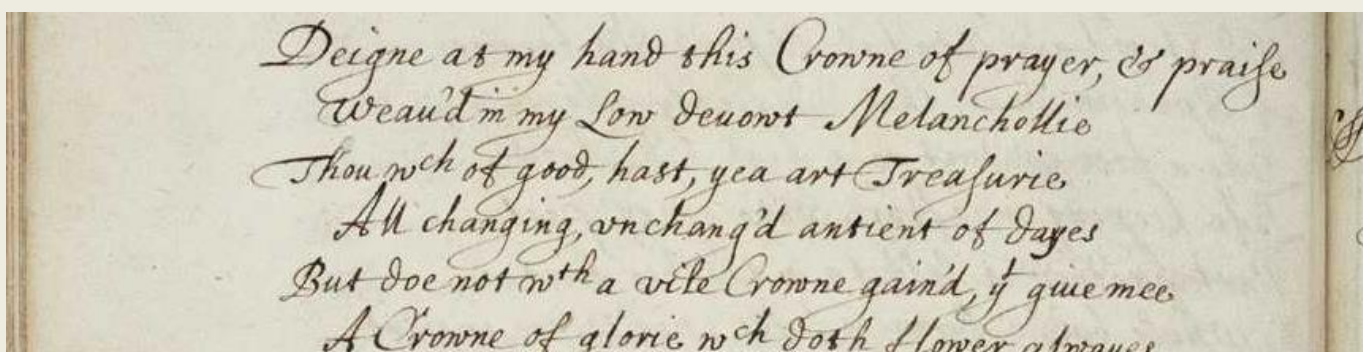 Deigne at my hand this Crowne of prayer, & praise
Weau'd in my Low deuowt Melanchollie
Thou wch of good, hast, yea art Treasurie
All changing, vnchang'd antient of dayes
But doe not wth a vile Crowne gain'd, yt giue mee
A Crowne of glorie wch doth flower alwayes